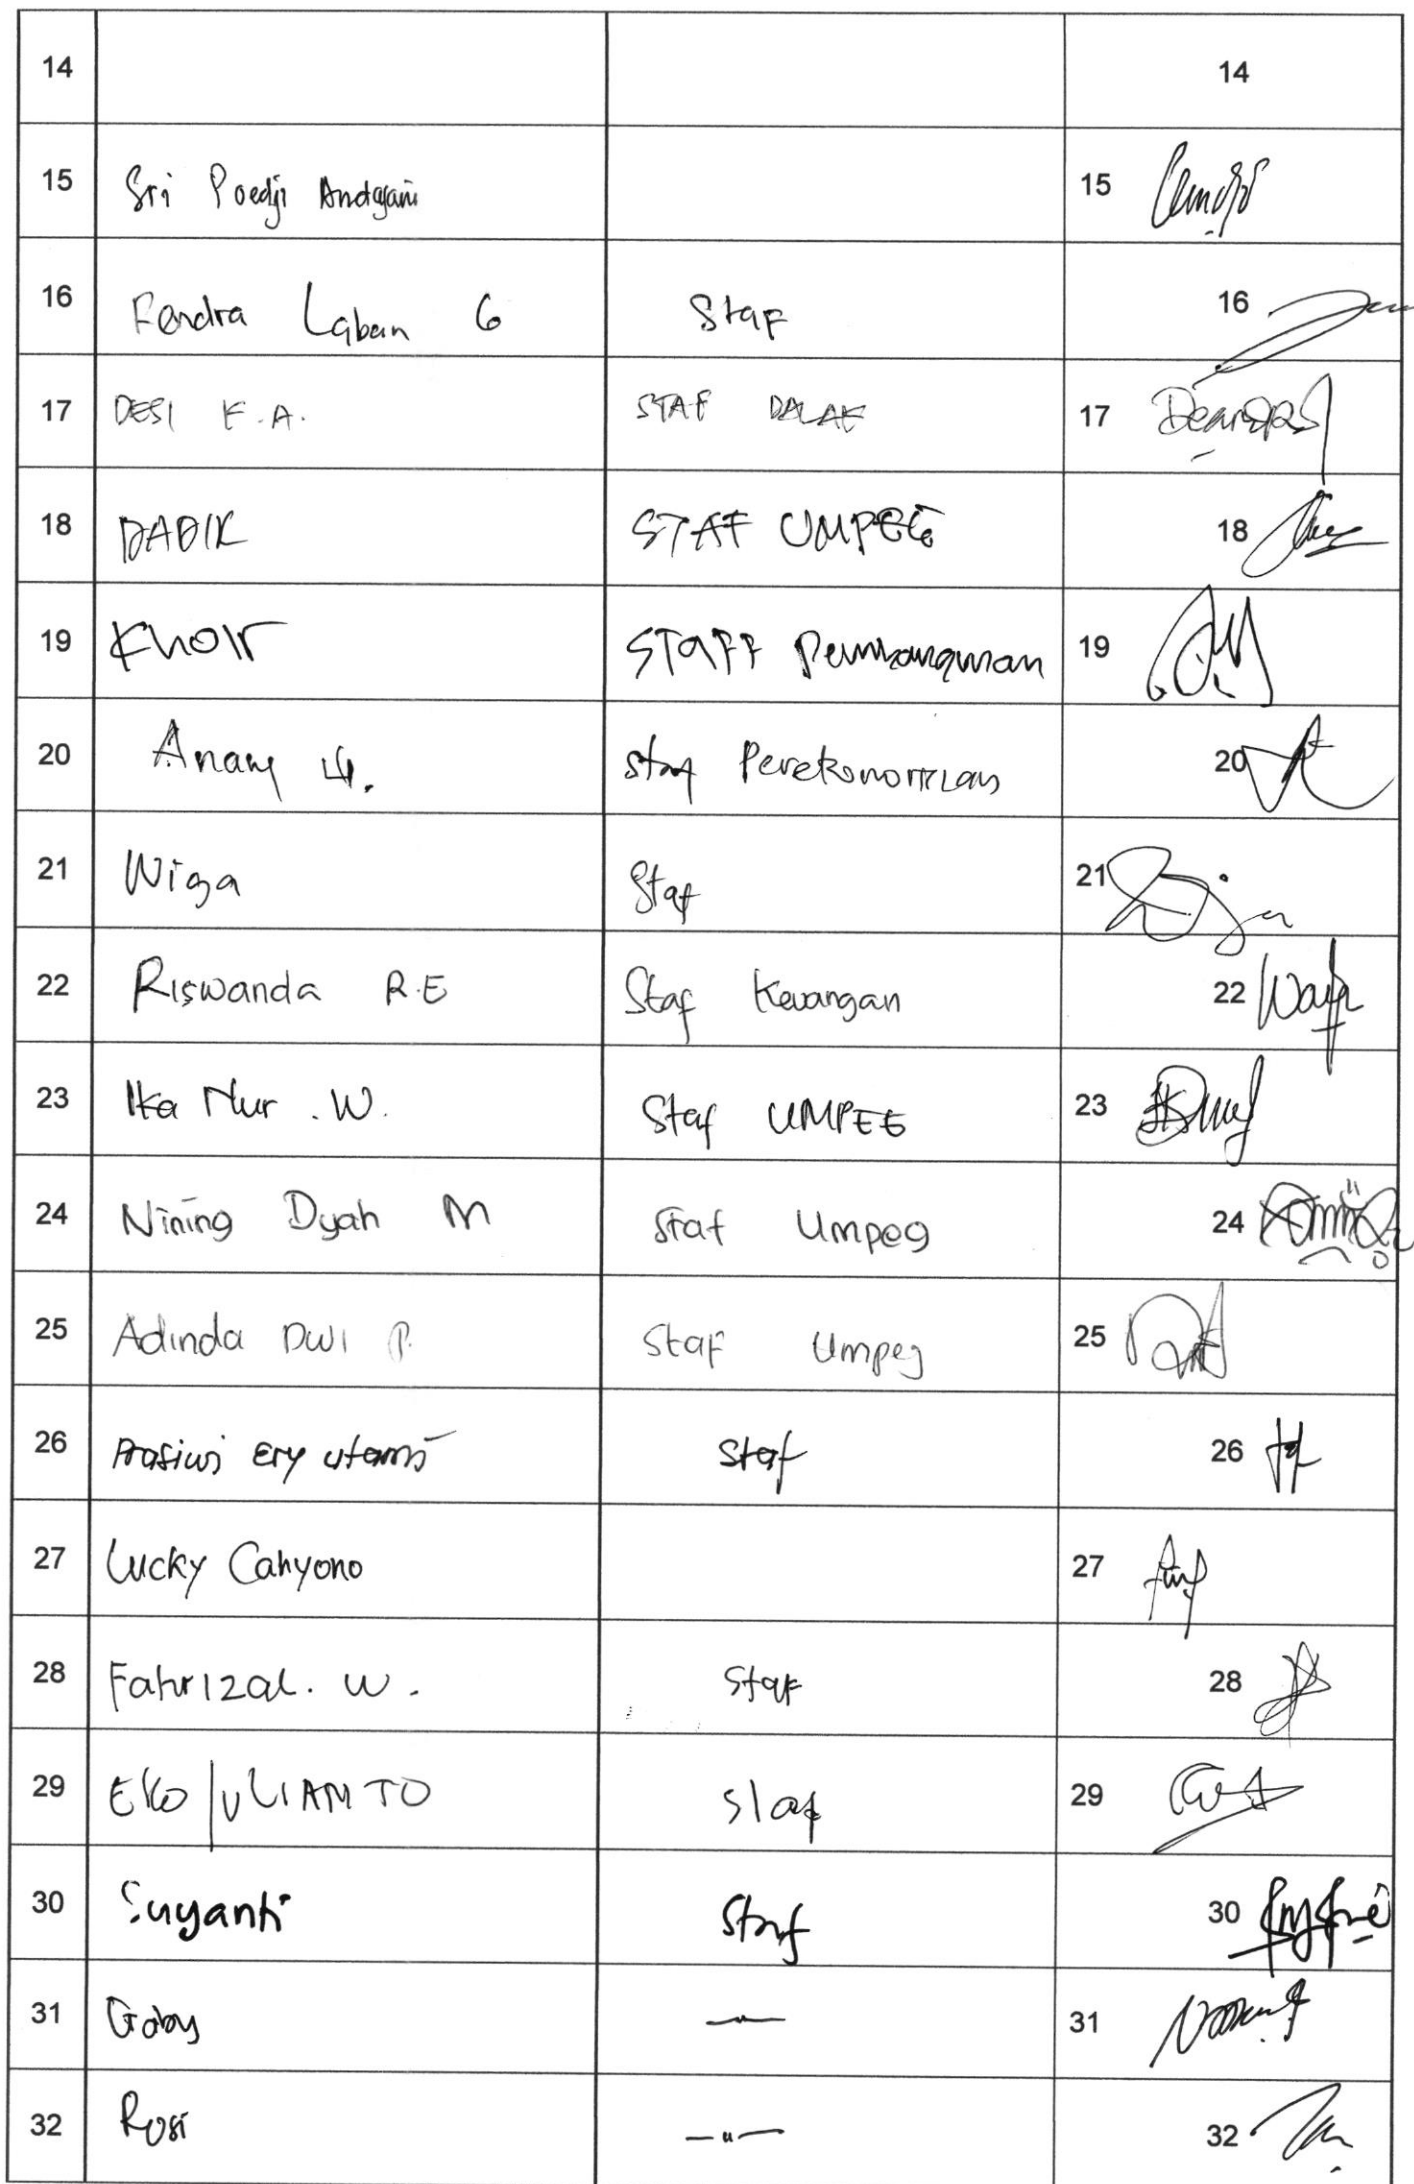 14 14
15 Sri Poedji Andajani 15
16 Fendra Laban G Staf 16
17 DESI F.A. STAF DALAK 17
18 DADIK STAF UMPEG 18
19 Khoir STAFF Pembangunan 19
20 Anang W. Staf Perekonomian 20
21 Wiga Staf 21
22 Riswanda R.E Staf Keuangan 22
23 Ika Nur . W. Staf UMPEG 23
24 Nining Dyah M Staf Umpeg 24
25 Adinda Dwi P. Staf Umpeg 25
26 Prasiwi Ery Utami Staf 26
27 Lucky Cahyono 27
28 Fahrizal. W. Staf 28
29 EKO JULIANTO Staf 29
30 Suyanti Staf 30
31 Gaby —"— 31
32 Rosi —"— 32